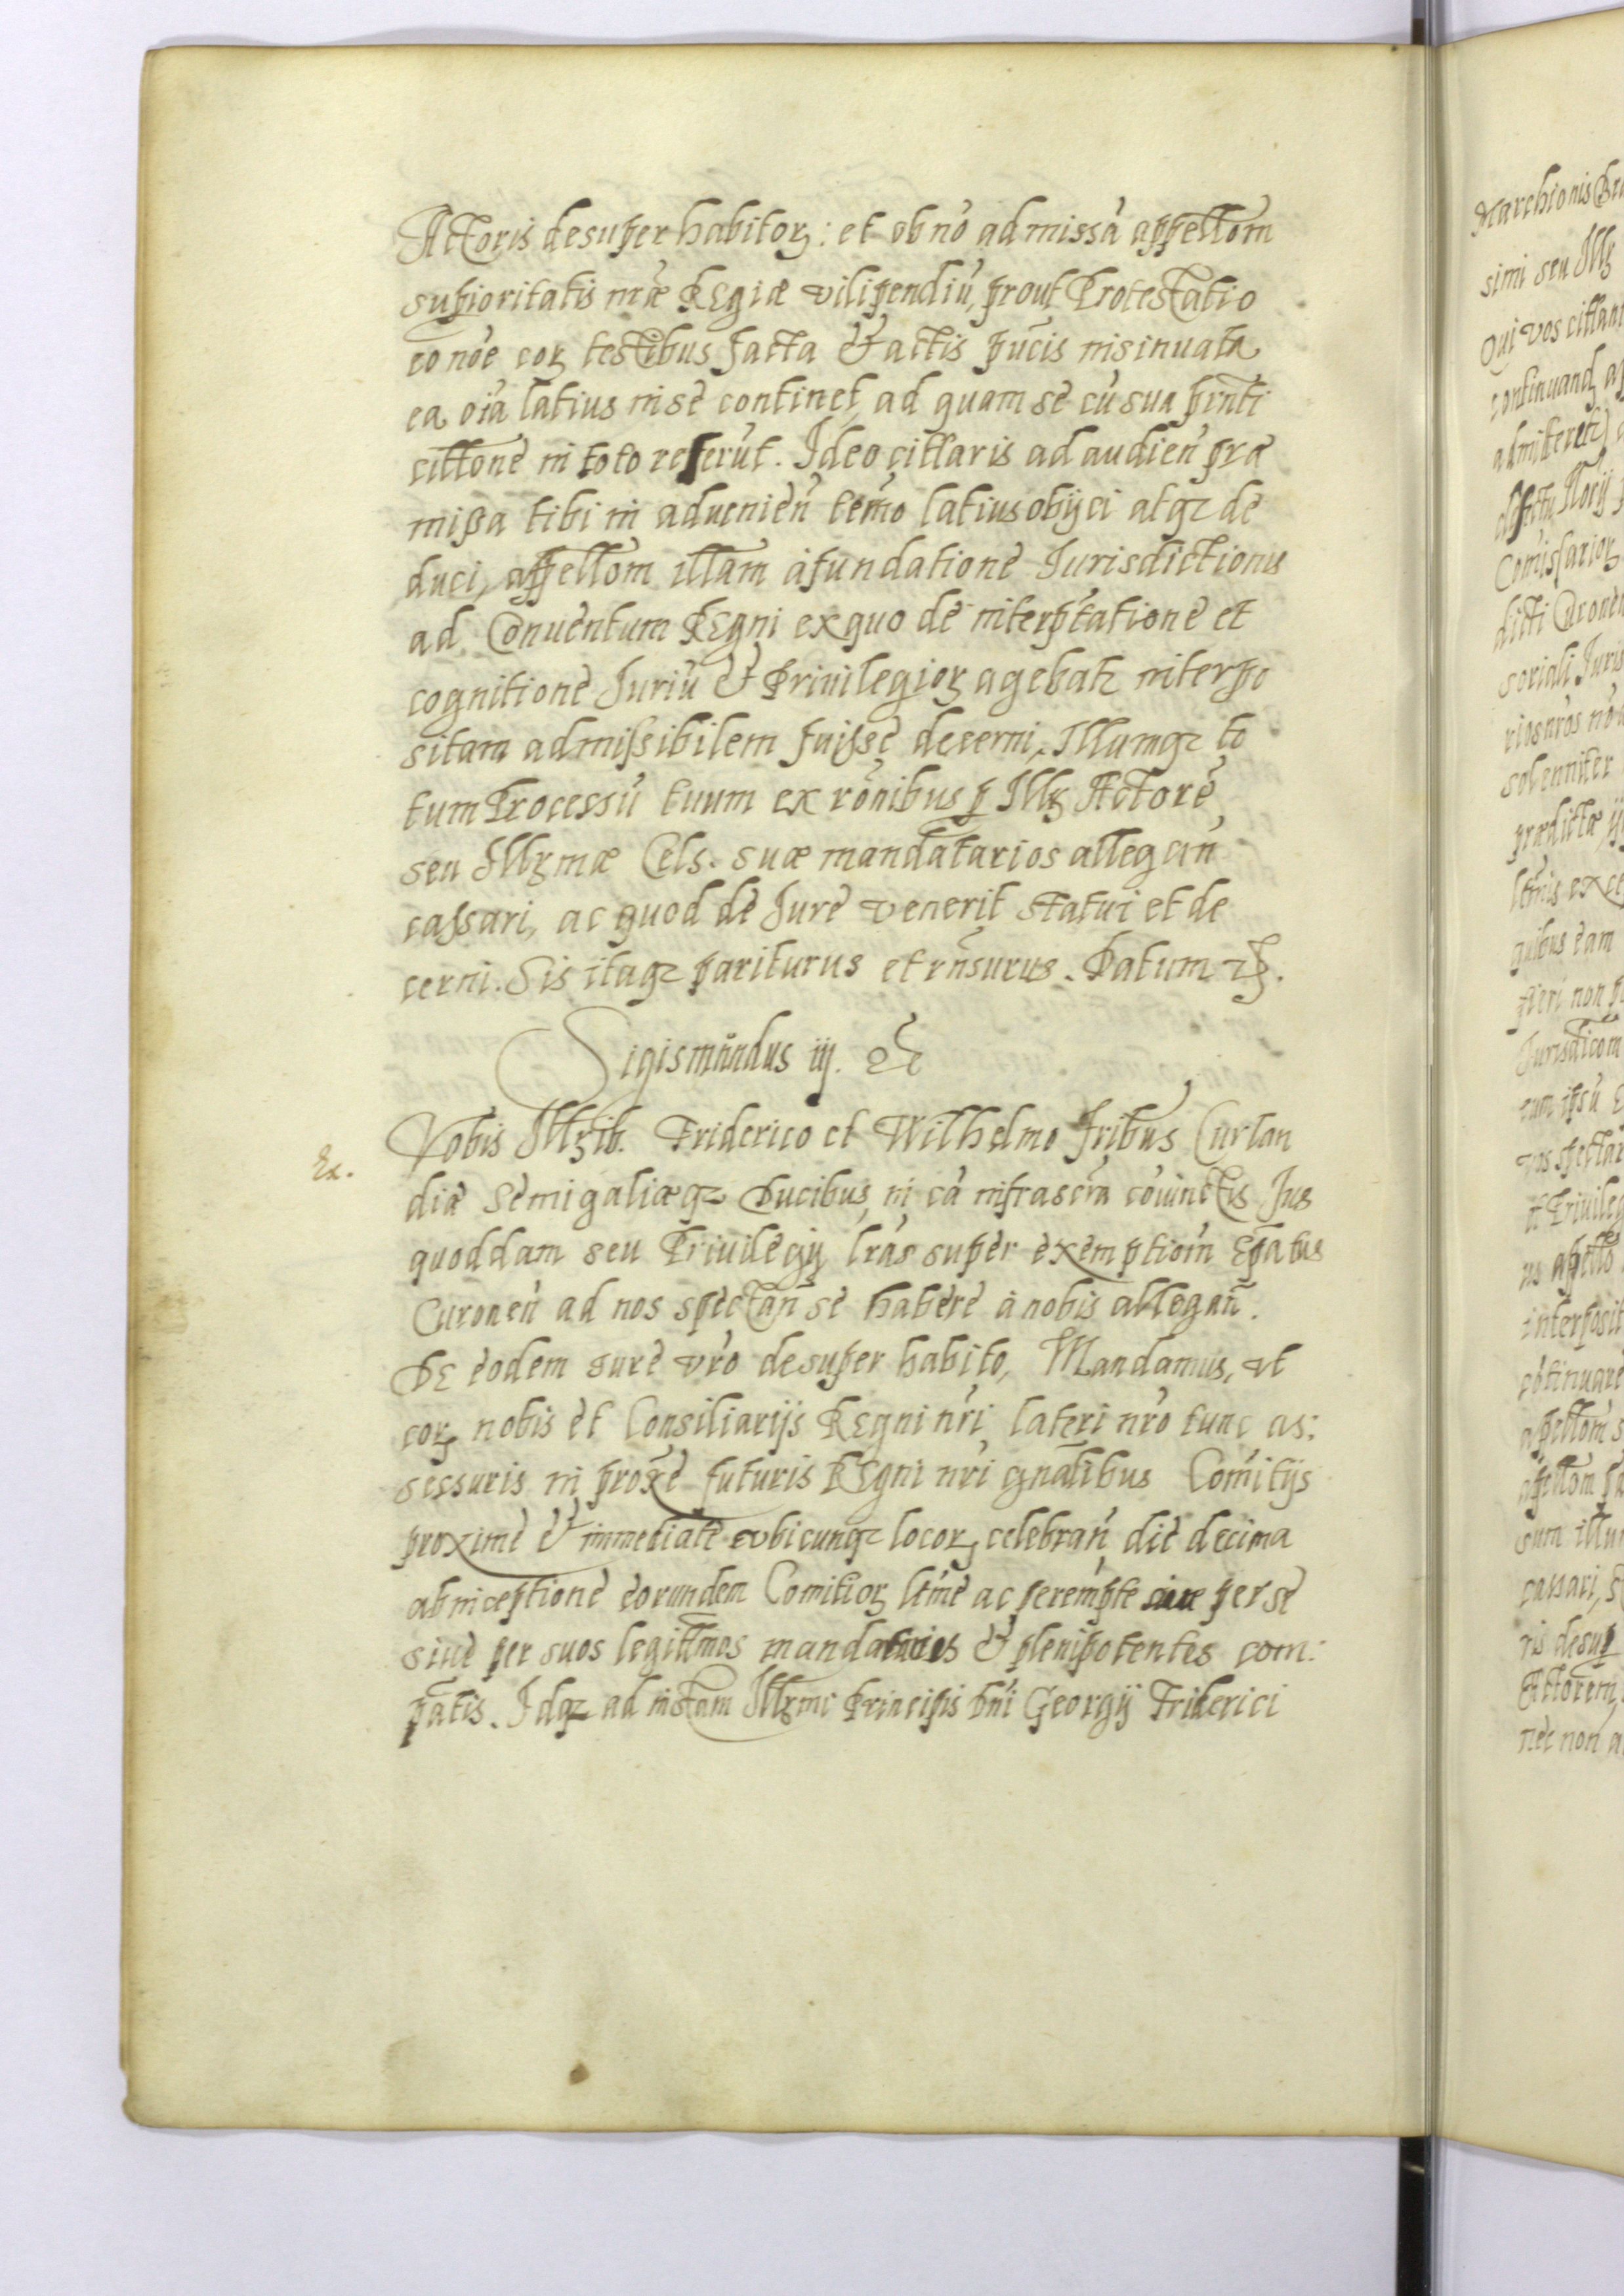 Actoris desuper habitoꝝ: et ob nō admissā appellōm
supioritatis nræ REgiæ vilipendiū, prout Protestatio
eo nōe coꝝ testibus facta & actis pucis insinuata
ea oīa latius in se continet, ad quam se cū sua pīnti
cittone in toto referūt. Ideo cittaris ad audien̄ præ
mißa tibi in aduenien̄ termo latius obijci atqz de
duci, appellōm illam à fundatione Jurisdictionis
ad Conuentum REgni ex quo de interp̄tatione et
cognitione Juriū & Priuilegioꝝ agebatꝛ interpo
sitam admissibilem fuisse decerni, Illumqz to
tum Processū tuum ex rōnibus ꝑ Illꝫ Actorē
seu Illꝫmæ Cels. suæ mandatarios allegan̄
cassari, ac quod de Jure venerit statui et de
cerni. Sis itaqz pariturus et rn̄surus. Datum ꝛꝫ.
Sigismūndus iij. ꝛꝫ
Ex.
Vobis Illꝫib. Friderico et Wilhelmo frībus Curlan
diæ Semigaliæqz Ducibus, in cā infrascrā coniunctis Jus
quoddam seu Priuilegij lrās super exemptiōm Ep̄atus
Curonen̄ ad nos spectan̄ se habere à nobis allegan̄.
DE eodem iure vrō desuper habito, Mandamus, vt
coꝝ nobis et Consiliarijs REgni nrī lateri nrō tunc as:
sessuris in proxe futuris REgni nrī gn̄alibus Comitijs
proxime & immediate vbicunqz locoꝝ celebran̄ die decima
ab inceptione eorundem Comitioꝝ ltme ac perempte siue per se
siue per suos legittmos mandatarios & plenipotentes com:
p̄atis. Idqz ad instam Illꝫmi Principis Dnī Georgij Friderici
Marchionis
simi seu Illꝫ
Qui vos
admitteretꝛ)
dicti
solenniter
prædictæ
quibus eam
fieri non
tum ipsū
appellōm
sum
cassari,
Actorem
nec non